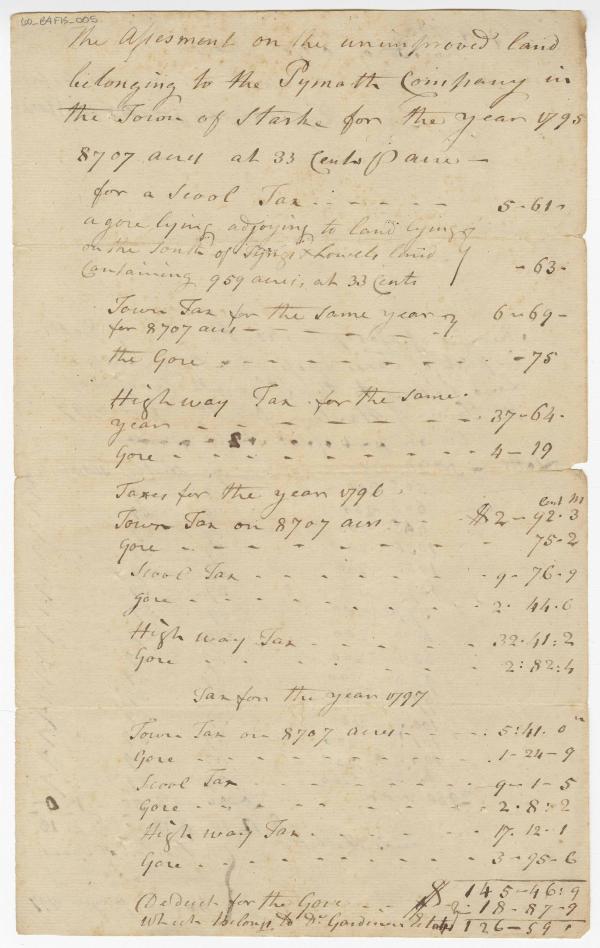 LO_B4F15_005
The Assesment on the unimproved land
belonging to the Pymoth Company in
the Town of Starks for the year 1795
8707 acres at 33 Cents p acre —
for a Scool Tax - - - - - 5-61-
a gore lying adjoying to land lying
on the South of & Lowels land
Containing 959 acres, at 33 Cents -63-
Town Tax for the same year 6-69-
for 8707 acrs - - - - -
the Gore - - - - - - -75
High way Tax for the same
year - - - - - - 37-64-
Gore - - - - - - 4-19
Taxes for the year 1796
Cent M
Town Tax on 8707 acrs - - $2-92.3
Gore - - - - - - 75-2
Scool Tax - - - - - 9-76-9
Gore - - - - - - 2. 44.6
High way Tax - - - - 32.41:2
Gore - - - - - - 2:82:4
Tax for the year 1797
Town Tax on 8707 acres - - - 5:41.0 m
Gore - - - - - - 1-24-9
Scool Tax - - - - - 9-1-5
Gore - - - - - - 2.8:2
High way Tax - - - - 17.12-1
Gore - - - - - - 3-95-6
$ 145-46:9
Deduct for the Gore - - - 18-87-9
Which belong to Dr Gardiner 126-59